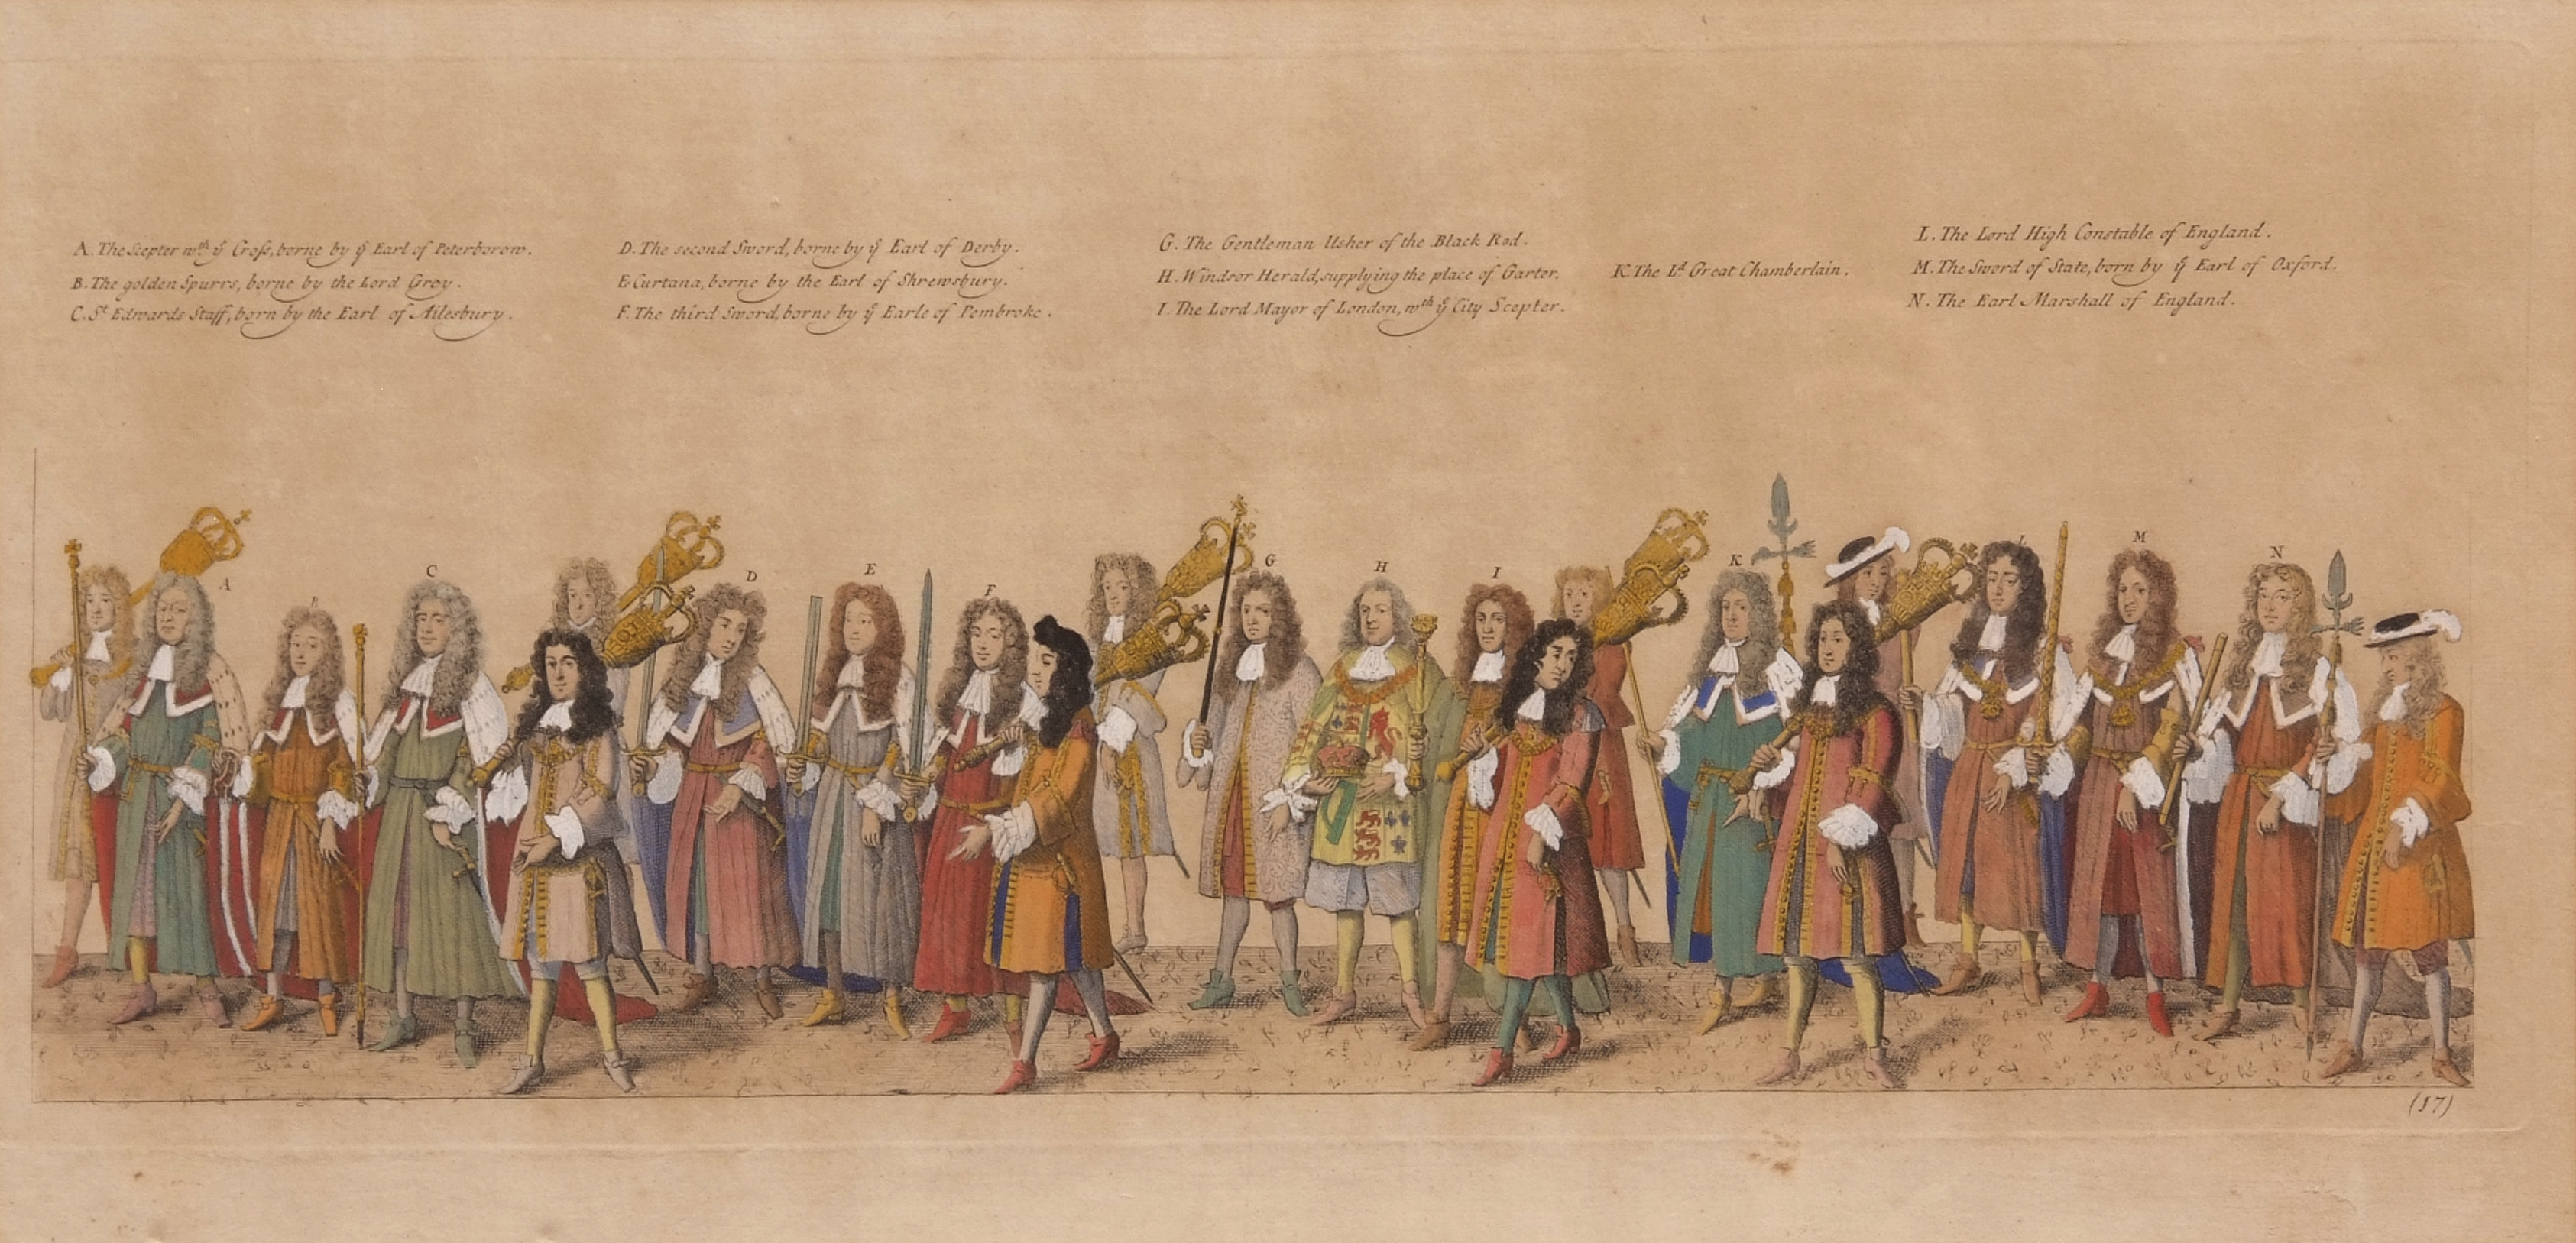 A. The Scepter wth ye Crosse, borne by ye Earl of Peterborow.
B. The golden Spurrs, borne by the Lord Grey.
C. St Edwards Staff, born by the Earl of Ailesbury.
D. The second Sword, borne by ye Earl of Derby.
E. Curtana, borne by the Earl of Shrewsbury.
F. The third Sword, borne by ye Earle of Pembroke.
G. The Gentleman Usher of the Black Rod.
H. Windsor Herald, supplying the place of Garter.
I. The Lord Mayor of London, wth ye City Scepter.
K. The Ld Great Chamberlain.
L. The Lord High Constable of England.
M. The Sword of State, born by ye Earl of Oxford.
N. The Earl Marshall of England.
A
B
C
D
E
F
G
H
I
K
L
M
N
(17)